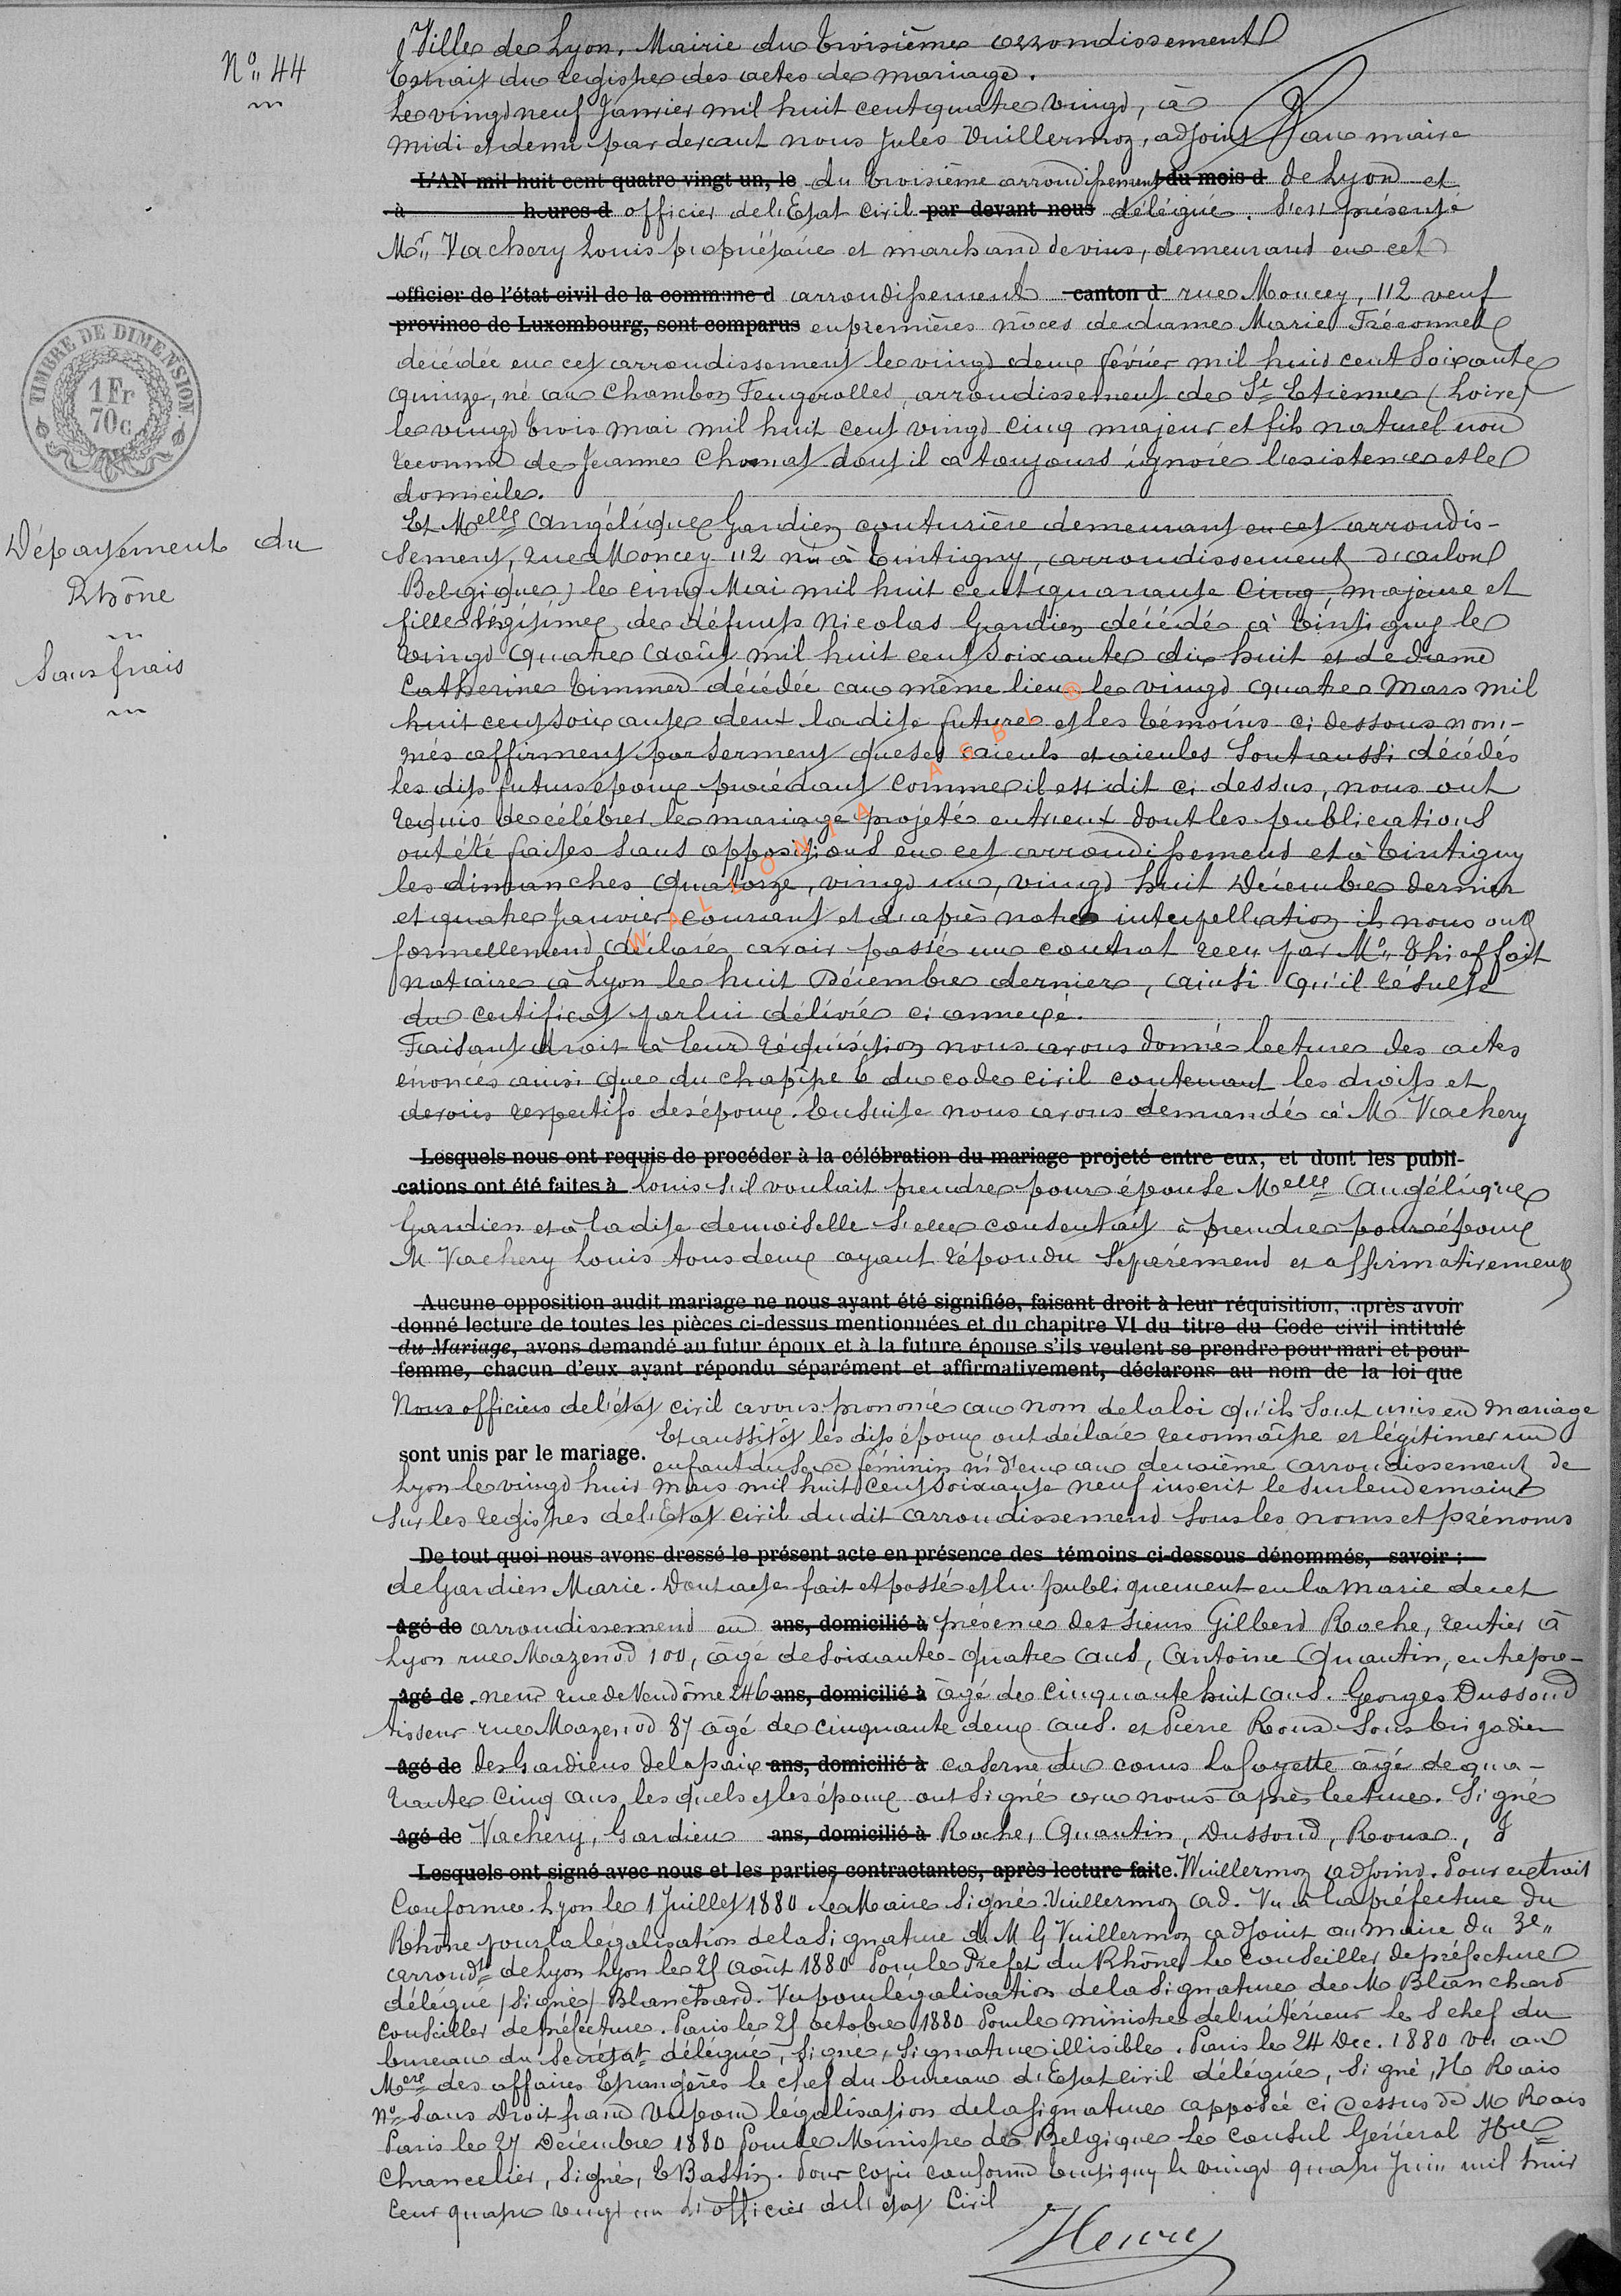 No 44
Ville de Lyon. Mairie du troisième arrondissement
Extrait du registre des actes de mariage.
Le vingt neuf Janvier mil huit cent quatre vingt, à
midi et demi par devant nous Jules Vuillermoz, adjoint au maire
L'AN mil huit cent quatre vingt un, le du troisième arrondissement du mois d de Lyon et
à heures d officier de l'Etat civil par devant nous délégué. S'est présenté
Mr Vachery Louis propriétaire et marchand de vins, demeurant en cet
officier de l'état civil de la commune d arrondissement canton d rue Moncey, 112 veuf
province de Luxembourg, sont comparus en premières noces de dame Marie Fréconnet
décédée en cet arrondissement le vingt deux février mil huit cent soixante
quinze, né au Chambon Feugerolles, arrondissement de St Etienne (Loire)
le vingt trois mai mil huit cent vingt cinq majeur et fils naturel non
reconnu de Jeanne Chomat dont il a toujours ignoré l'existence et le
domicile.
Et Melle Angélique Gardien couturière demeurant en cet arrondis-
sement, rue Moncey 112 née à Tintigny, arrondissement d'arlon
Belgique) le cinq Mai mil huit cent quarante cinq, majeure et
fille légitime de défunts Nicolas Gardien décédé à Tintigny le
vingt quatre août mil huit cent soixante dix huit et de dame
Catherine Timmer décédée au même lieu le vingt quatre Mars mil
huit cent soixante deux ladite future et les témoins ci dessous nom-
més affirment par serment que ses aieuls et aieules sont aussi décédés
Les dits futurs époux procédant comme il est dit ci dessus, nous ont
requis de célébrer le mariage projeté entr'eux dont les publications
ont été faites sans oppositions en cet arrondissement et à Tintigny
les dimanches quatorze, vingt un, vingt huit Décembre dernier
et quatre Janvier courant et d'après notre interpellation ils nous ont
formellement déclaré avoir passé un contrat reçu par Me Thiaffait
notaire à Lyon le huit Décembre dernier, ainsi qu'il résulte
du certificat par lui délivré ci annexé.
Faisant droit à leur réquisition nous avons donné lecture des actes
énoncés ainsi que du chapitre 6 du code civil contenant les droits et
devoirs respectifs des époux. Ensuite nous avons demandé à M Vachery
Lesquels nous ont requis de procéder à la célébration du mariage projeté entre eux, et dont les publi-
cations ont été faites à Louis s'il voulait prendre pour épouse Melle Angélique
Gardien et à ladite demoiselle si elle consentait à prendre pour époux
M Vachery Louis tous deux ayant répondu séparément et affirmativement
Aucune opposition audit mariage ne nous ayant été signifiée, faisant droit à leur réquisition, après avoir
donné lecture de toutes les pièces ci-dessus mentionnées et du chapitre VI du titre du Code civil intitulé
du Mariage, avons demandé au futur époux et à la future épouse s'ils veulent se prendre pour mari et pour
femme, chacun d'eux ayant répondu séparément et affirmativement, déclarons au nom de la loi que
Nous officier de l'état civil avons prononcé au nom de la loi qu'ils sont unis en mariage
Et aussitôt les dits époux ont déclaré reconnaître et légitimer un
sont unis par le mariage.
enfant du sexe féminin né d'eux au deuxième arrondissement de
Lyon le vingt huit mars mil huit cent soixante neuf inscrit le surlendemain
sur les registres de l'Etat civil dudit arrondissement sous les noms et prénoms
De tout quoi nous avons dressé le présent acte en présence des témoins ci-dessous dénommés, savoir :
de Gardien Marie. Dont acte fait et passé et lu publiquement en la mairie de cet
âgé de arrondissement en ans, domicilié à présence des sieurs Gilbert Roche, rentier à
Lyon rue Mazenod 100, âgé de soixante-quatre ans, Antoine Quantin, entrepre-
âgé de neur rue de Vendôme 246 ans, domicilié à âgé de cinquante huit ans. Georges Dussoud
tisseur rue Mazenod 87 âgé de cinquante deux ans. et Pierre Roux sous brigadier
âgé de des Gardiens de la paix ans, domicilié à caserne du cours Lafayette âgé de qua-
rante cinq ans, lesquels et les époux ont signé avec nous après lecture. Signé
âgé de Vachery, Gardien ans, domicilié à Roche, Quantin, Dussoud, Roux, J
Lesquels ont signé avec nous et les parties contractantes, après lecture faite. Vuillermoz adjoint. Pour extrait
Conforme. Lyon le 1 Juillet 1880 Le Maire Signé Vuillermoz ad. Vu à la préfecture du
Rhône pour la légalisation de la signature de M G Vuillermoz adjoint au maire du 3e
arrondt de Lyon Lyon le 25 août 1880 Pour le Préfet du Rhône Le Conseiller de préfecture
délégué (Signé) Blanchard. Vu pour légalisation de la signature de M Blanchard
conseiller de préfecture. Paris le 25 octobre 1880 Pour le ministre de l'intérieur Le s chef du
bureau du Secrétat délégué, signé, signature illisible. Paris le 24 Dec. 1880 vu au
Mere des affaires Etrangères le chef du bureau d'Etat civil délégué, signé, H Rais
No Sans Droit franc Vu pour légalisation de la signature apposée ci dessus de M Rais
Paris le 27 Décembre 1880 Pour le Ministre de Belgique Le Consul Général Hre
Chancelier, signé, E Bastin. Pour copie conforme Tintigny le vingt quatre Juin mil huit
cent quatre vingt un L'officier de l'etat Civil
Henry
TIMBRE DE DIMENSION
1 Fr
70 c
Département du
Rhône
Sans frais
WALLONIA ASBL ®